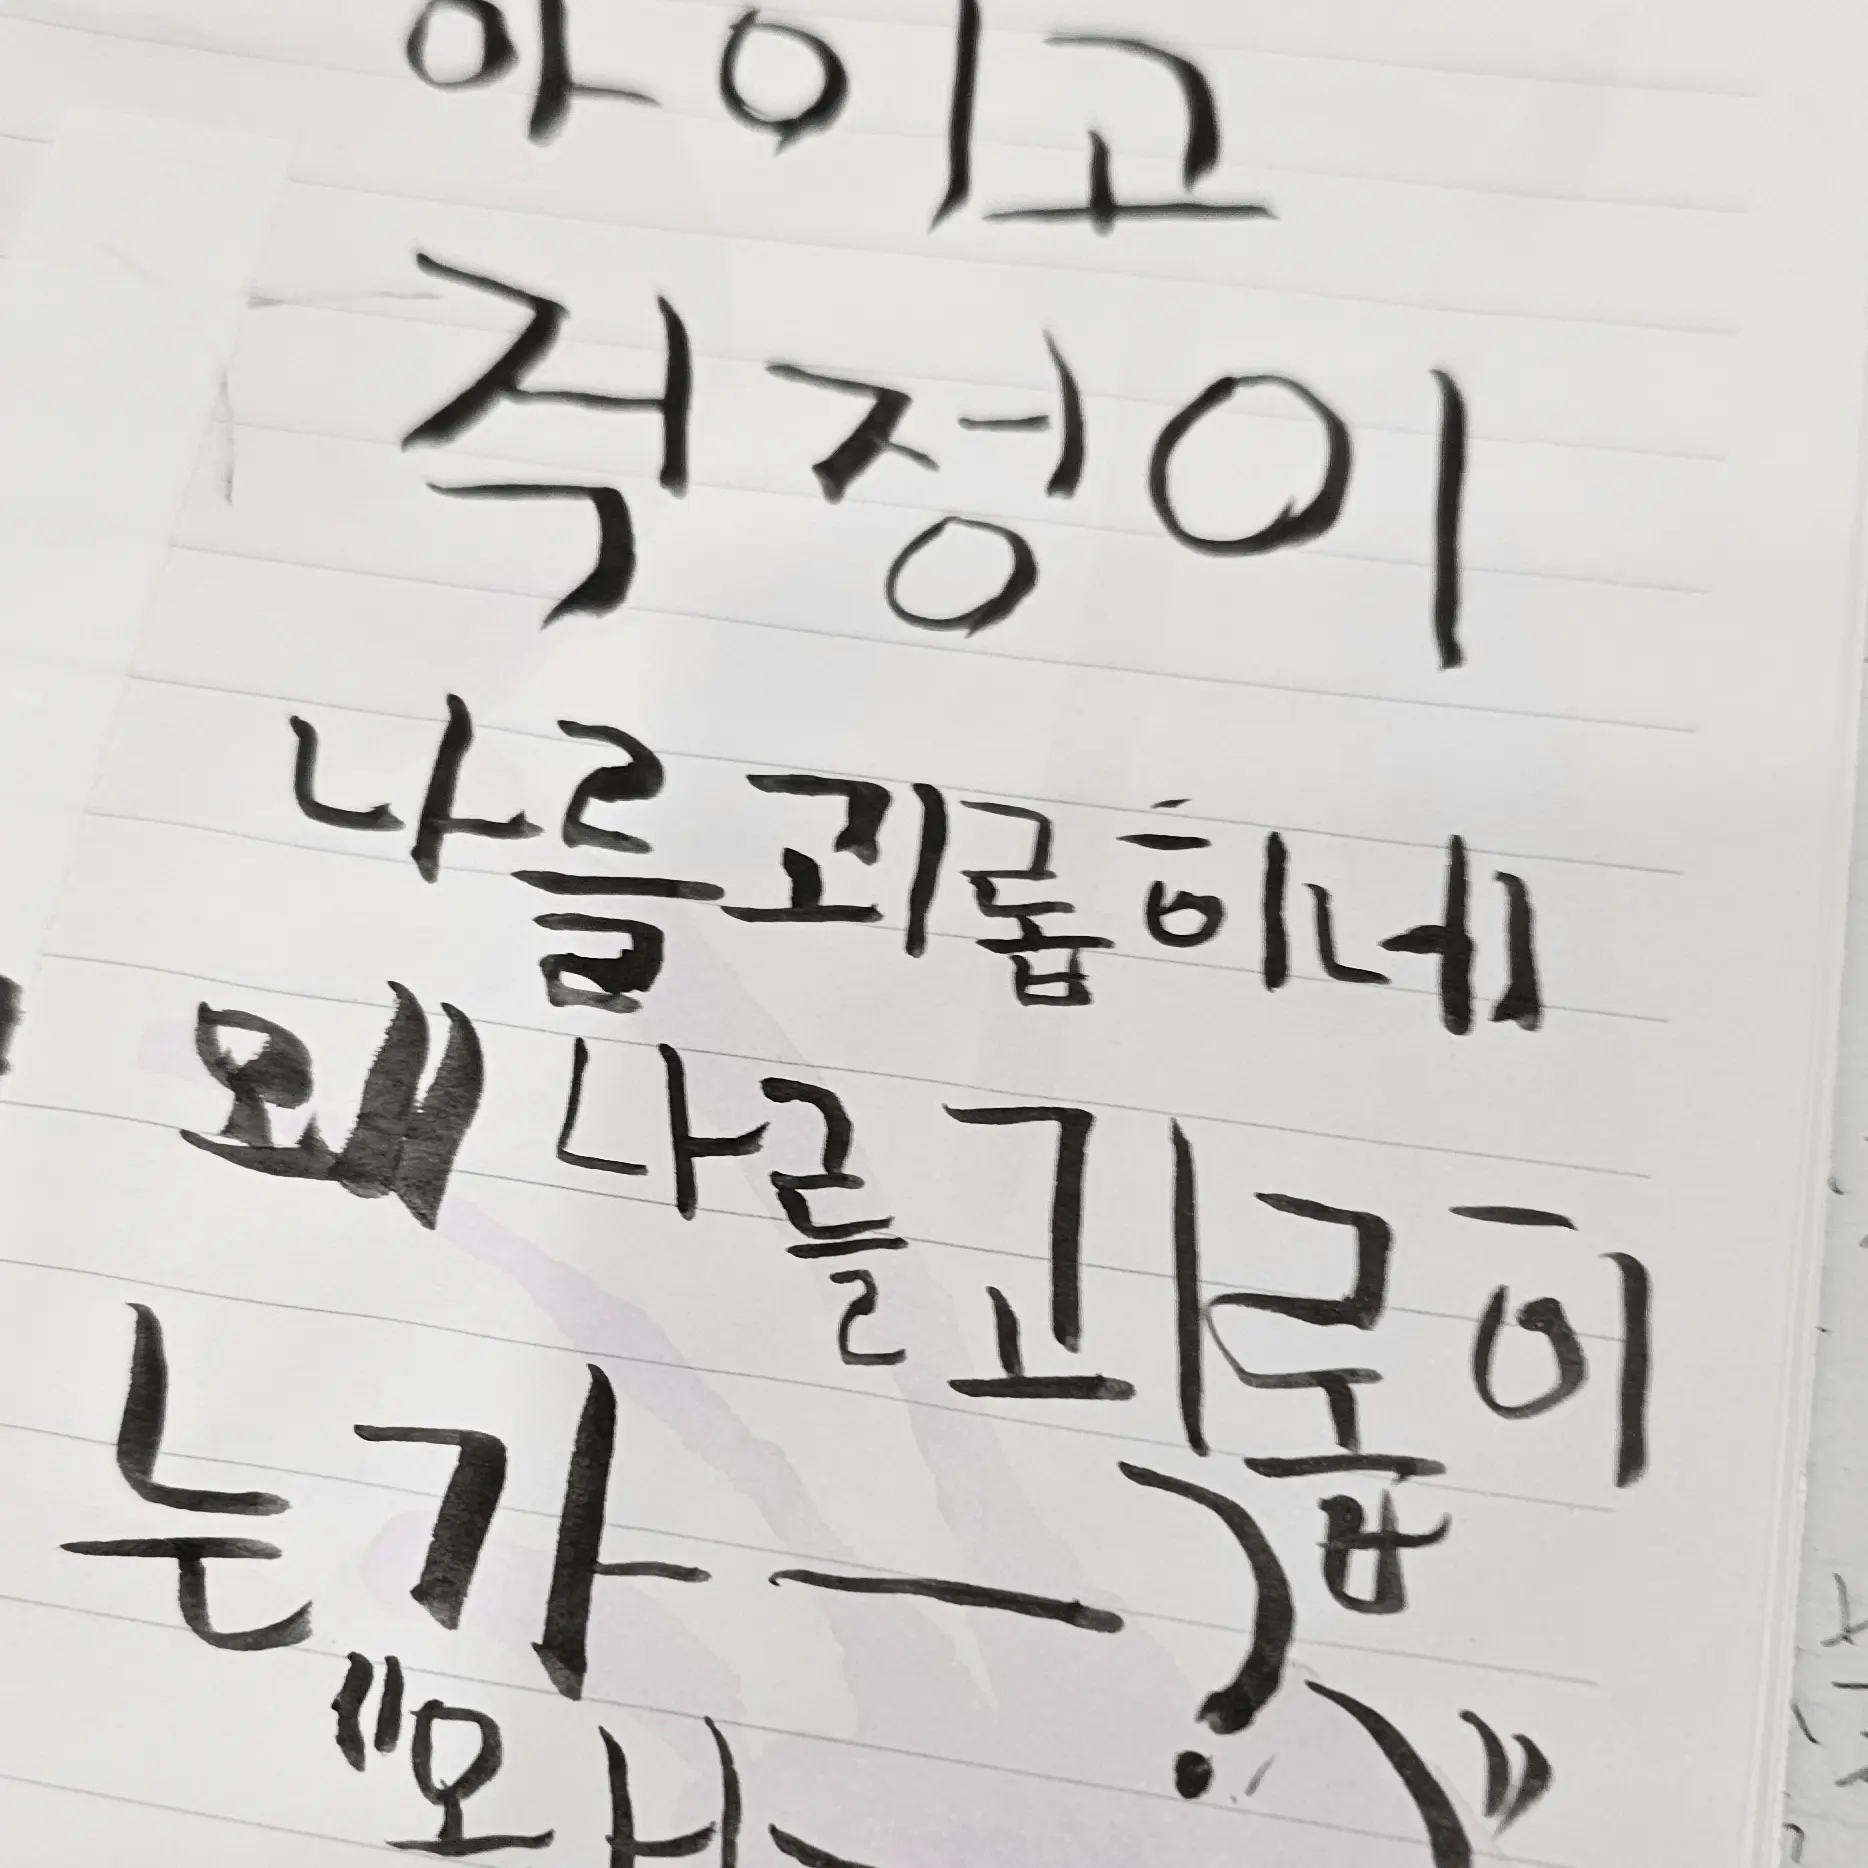 아이고
걱정이
나를 괴롭히네
왜 나를 괴롭히
는가 — ?
"왜 — ?"